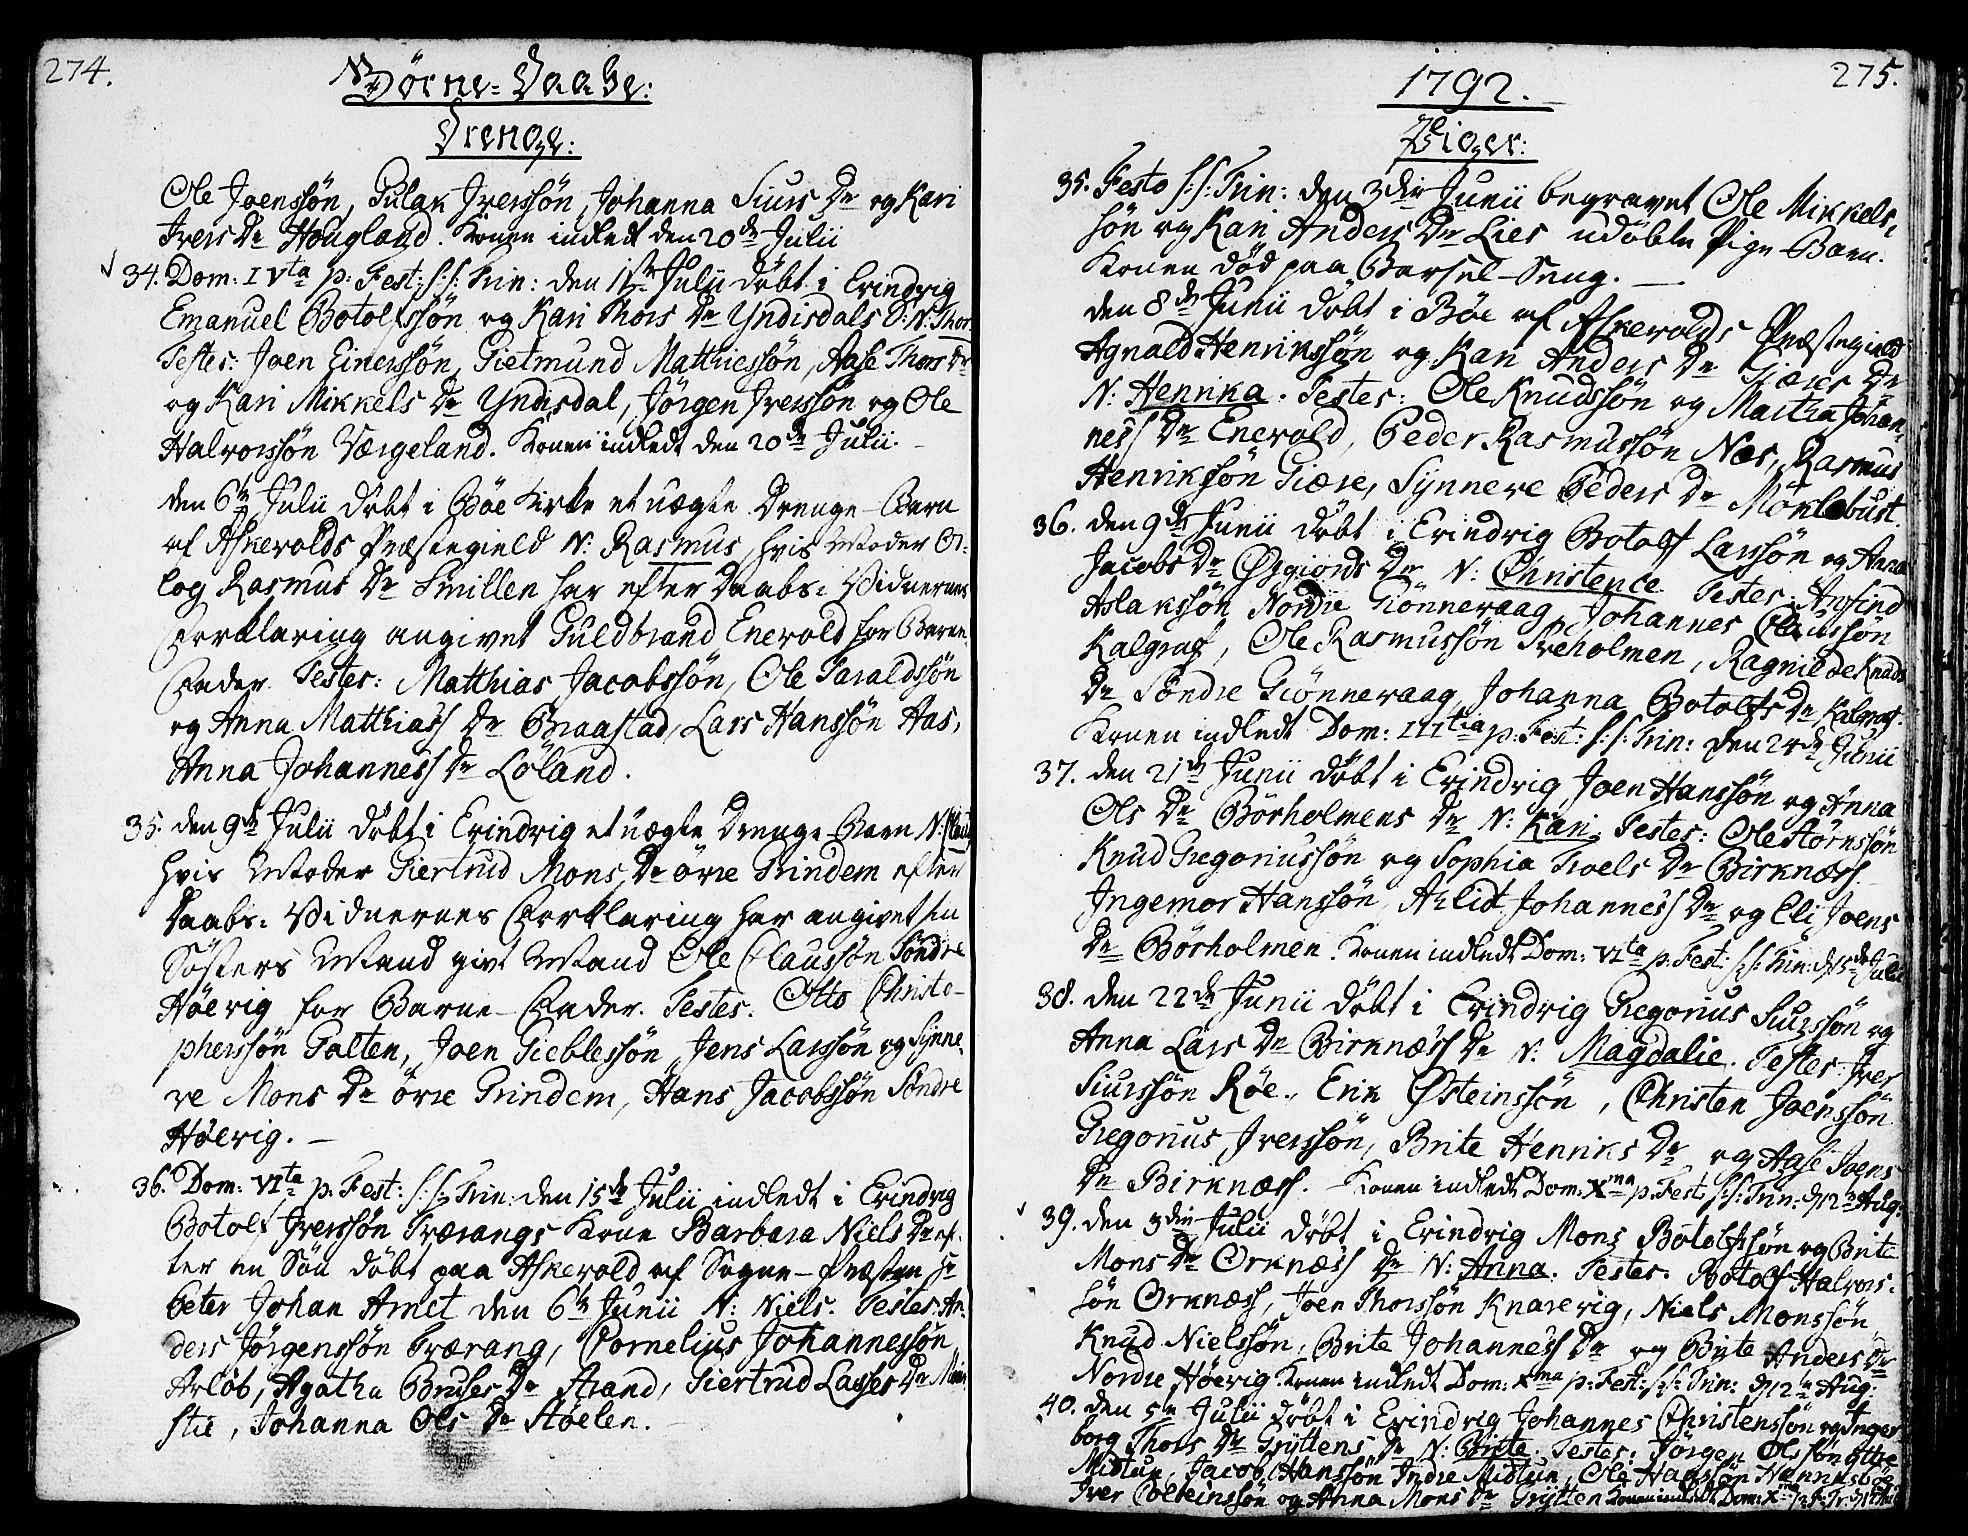 274.
Börne-Daabe:
Drenge:
Ole Joenssön, Gulak Iverssön, Johanna Siurs Dr og Kari
Ivers Dr Hougland. Konen indledt den 20de Julii
34. Dom: IVta p: Fest: S:S: Trin: den 1ste Julii döbt i Evindvig
Emanuel Botolfssön og Kari Thors Dr Yndisdals S: N: Thor.
Testes: Joen Einerssön, Gietmund Matthiessön, Aase Thors Dr
og Kari Mikkels Dr Yndisdal, Jörgen Iverssön og Ole
Halvorssön Værgeland. Konen indledt den 20de Julii.
den 6te Julii döbt i Böe Kirke et uægte Drenge-Barn
af Askevolds Præstegield N: Rasmus, hvis Moder O-
log Rasmus Dr Smillen har efter Daabs-Vidnernes
Forklaring angivet Guldbrand Enevold for Barne-
Fader. Testes: Matthias Jacobssön, Ole Taraldssön
og Anna Matthiass Dr Braastad, Lars Hanssön Aas,
Anna Johanness Dr Löland.
35. den 9de Julii döbt i Evindvig et uægte Drenge-Barn N: Claus,
hvis Moder Giertrud Mons Dr övre Grindem efter
Daabs-Vidnernes Forklaring har angivet sin
Sösters Mand givt Mand Ole Claussön Söndre
Höevig for Barne-Fader. Testes: Otto Christo-
pherssön Galten, Joen Gieblessön, Jens Larssön og Synne-
ve Mons Dr övre Grindem, Hans Jacobssön Söndre
Höevig.
36. Dom: VIta p: Fest: S:S: Trin: den 15de Julii indledt i Evindvig
Botolf Iverssön Træerangs Kone Barbara Niels Dr ef-
ter en Sön döbt paa Askevold af Sogne-Præsten Hr
Peter Johan Arnet den 6te Junii N: Niels. Testes: An-
ders Jörgenssön Træerang, Cornelius Johannessön
Arlöb, Agatha Bruses Dr Strand, Giertrud Lasses Dr
stie, Johanna Ols Dr Stöelen.
1792.
275.
Piger:
35. Festo S:S: Trin: den 3die Junii begravet Ole Mikkels-
sön og Kari Anders Dr Lies udöbte Pige-Barn.
Konen död paa Barsel-Seng.
den 8de Junii döbt i Böe af Askevolds Præstegield
Agnald Henrikssön og Kari Anders Dr Giæres Dr
N: Henrika. Testes: Ole Knudssön og Martha Johan-
ness Dr Enevold, Peder Rasmussön Næs, Rasmus
Henrikssön Giære, Synneve Peders Dr Möklebust.
36. den 9de Junii döbt i Evindvig Botolf Larssön og Anna
Jacobs Dr Östgiords Dr N: Christence. Testes: Arfind
Aslakssön Nordre Giönneraag, Johannes Claussön
Kalgraf, Ole Rasmussön Treholmen, Ragnilde Knuds
Dr Söndre Giönneraag, Johanna Botolfs Dr Kalgraf.
Konen indledt Dom: IIItia p: Fest: S:S: Trin: den 24de Junii
37. den 21de Junii döbt i Evindvig Joen Hanssön og Anna
Ols Dr Börholmens Dr N: Kari. Testes: Ole Störkssön
Knud Gregoriussön og Sophia Troels Dr Birknæss
Ingemor Hanssön, Arlid Johanness Dr og Eli Joens
Dr Börholmen. Konen indledt Dom: VIta p: Fest: S:S: Trin: d. 15de Julii
38. den 22de Junii döbt i Evindvig Gregorius Siurssön og
Anna Lars Dr Birknæss Dr N: Magdalie. Testes: Iver
Siurssön Röe, Erik Östeinssön, Christen Joenssön
Gregorius Iverssön, Brite Henriks Dr og Aase Joens
Dr Birknæss. Konen indledt Dom: Xma p: Fest S:S: Trin: d. 12te Aug.
39. den 3die Julii döbt i Evindvig Mons Botolfssön og Brite
Mons Dr Orknæss Dr N: Anna. Testes: Botolf Halvors-
sön Orknæss, Joen Thorssön Knarevig, Niels Monssön
Knud Nielssön, Brite Johanness Dr og Brite Anders Dr
Nordre Höevig. Konen indledt Dom: Xma p: Fest: S:S: Trin: d. 12te Aug:
40. den 5te Julii döbt i Evindvig Johannes Christenssön og Inger
borg Thors Dr Gryttens Dr N: Brite. Testes: Jörgen Olssön ytte
Midtun, Jacob Hanssön Indre Midtun, Ole Hanssön Hennesböe
Iver Colbeinssön og Anna Mons Dr Grytten Konen indledt Dom: Xma